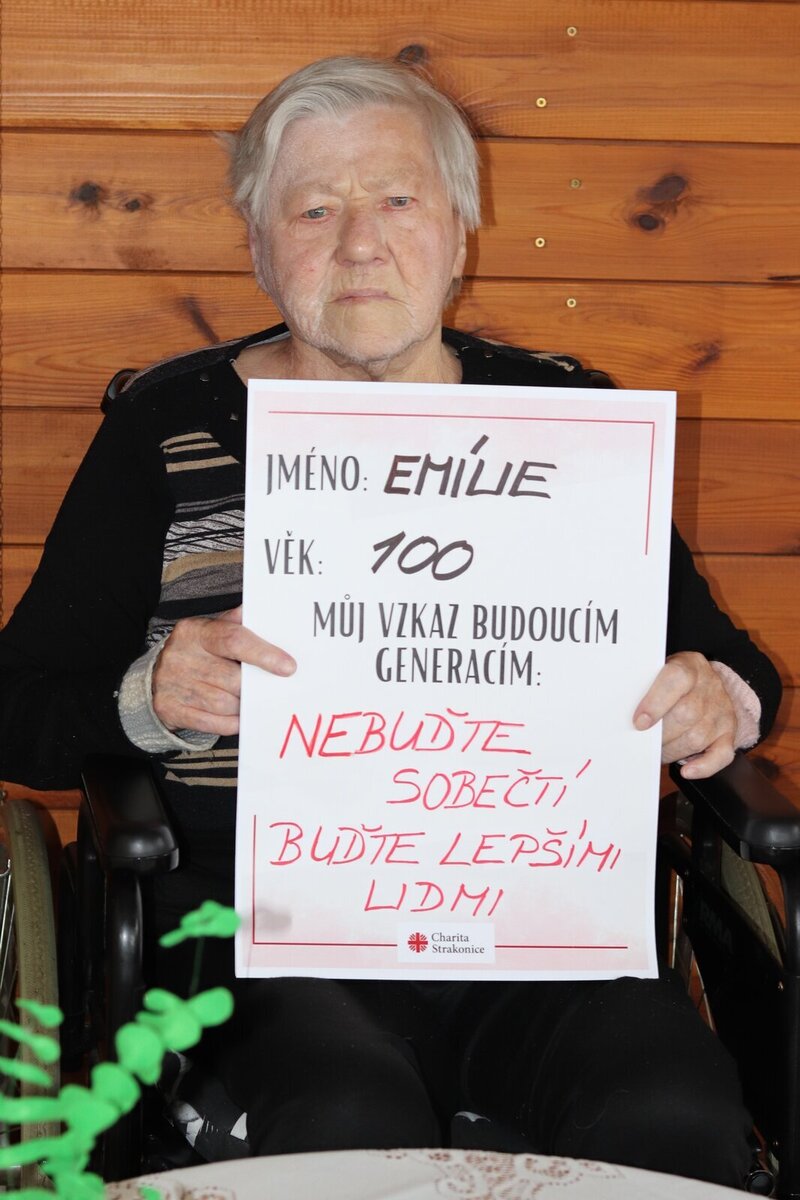 JMÉNO: EMÍLIE
VĚK: 100
MŮJ VZKAZ BUDOUCÍM
GENERACÍM:
NEBUĎTE
SOBEČTÍ
BUĎTE LEPŠÍMI
LIDMI
Charita
Strakonice